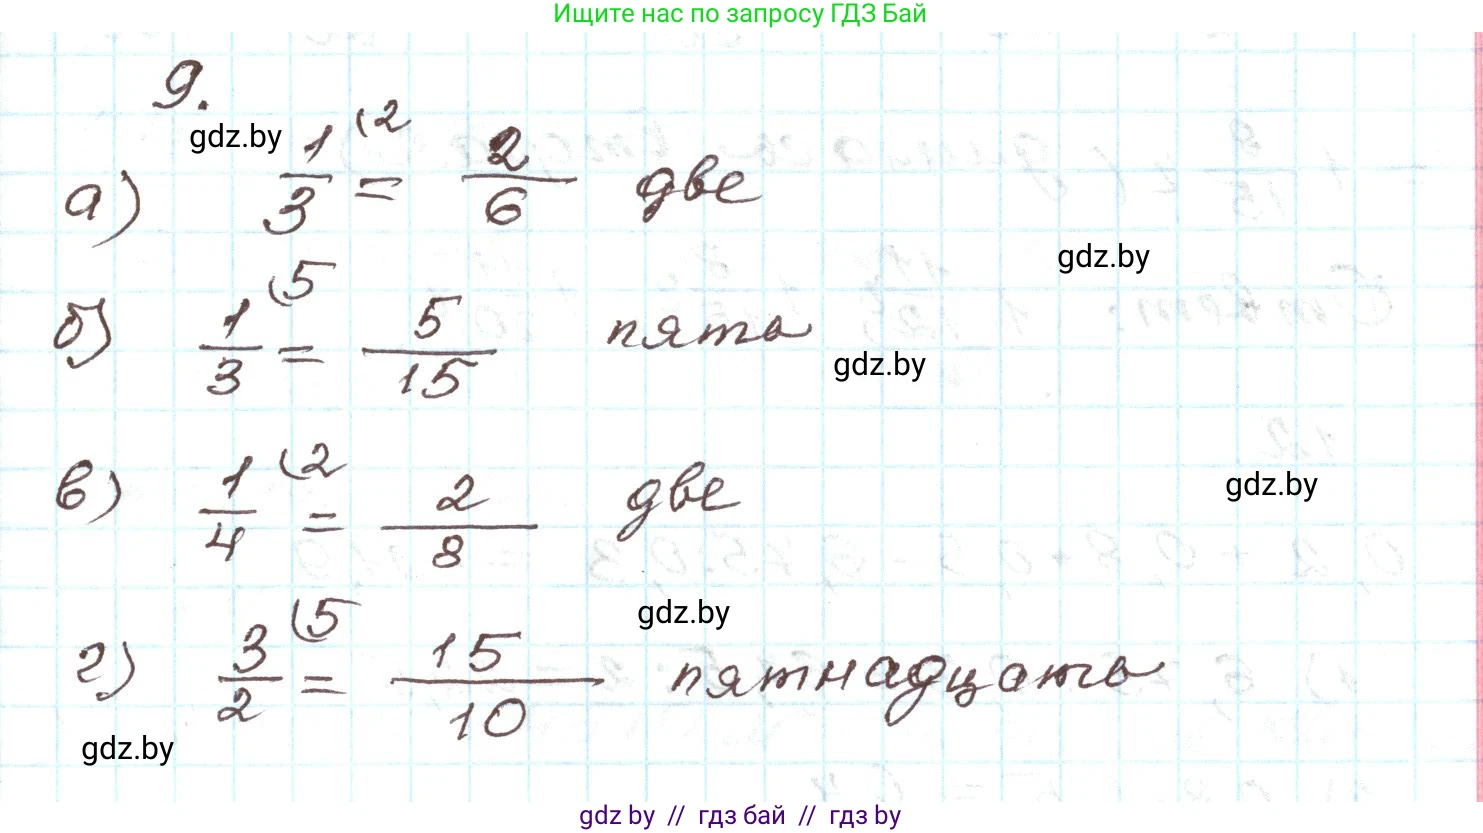 Ищите нас по запросу ГДЗ Бай
9.
gdz.by
а) 1/3 (2 = 2/6 две
gdz.by
б) 1/3 (5 = 5/15 пять
gdz.by
в) 1/4 (2 = 2/8 две
gdz.by
gdz.by
г) 3/2 (5 = 15/10 пятнадцать
gdz.by
gdz.by // гдз бай // гдз by